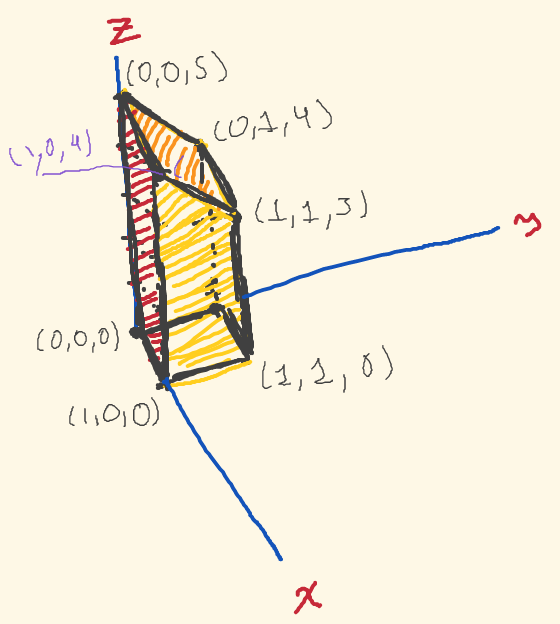 z
(0,0,5)
(0,1,4)
(1,0,4)
(1,1,3)
y
(0,0,0)
(1,1,0)
(1,0,0)
x